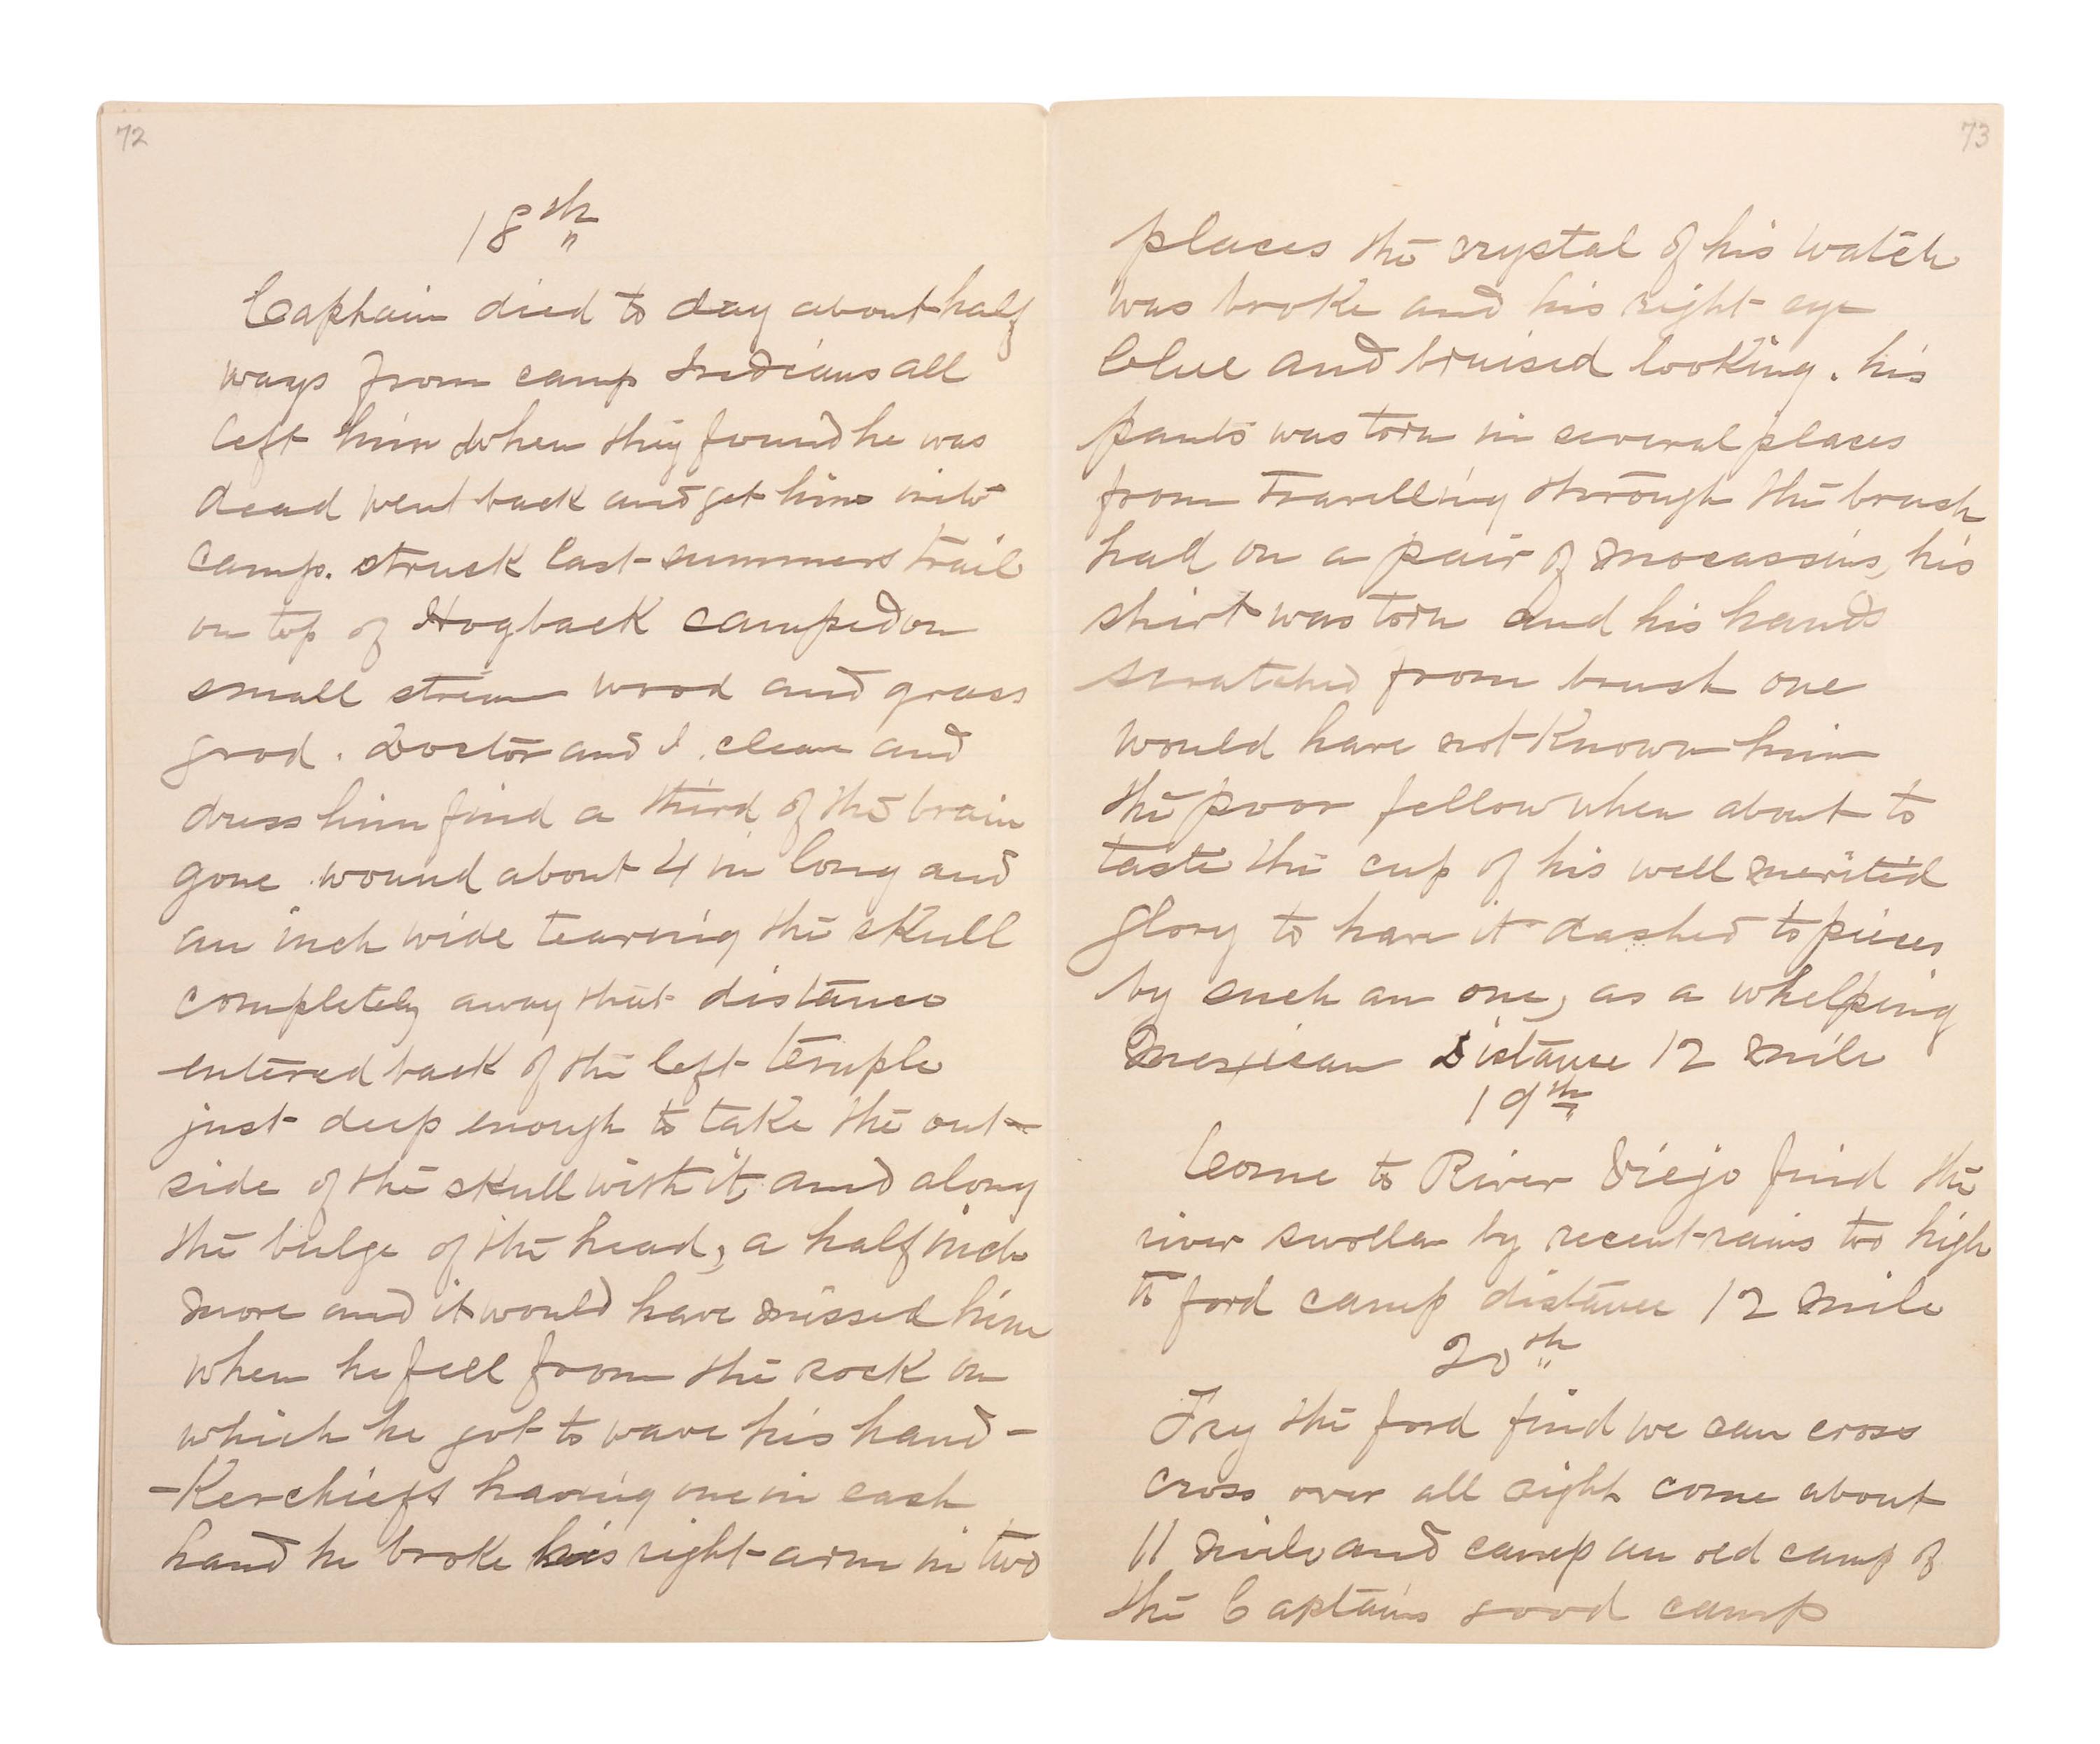 72
18th
Captain died to day about half
ways from camp Indians all
left him when they found he was
dead went back and get him into
camp. struck last summers trail
on top of Hogback camped on
small stream wood and grass
good. Doctor and I clean and
dress him find a third of the brain
gone wound about 4 in long and
an inch wide tearing the skull
completely away that distance
entered back of the left temple
just deep enough to take the out-
side of the skull with it, and along
the bulge of the head, a half inch
more and it would have missed him
when he fell from the rock on
which he got to wave his hand-
-Kerchiefs having one in each
hand he broke his right arm in two
73
places the crystal of his watch
was broke and his right eye
blue and bruised looking. his
pants was torn in several places
from travelling through the brush
had on a pair of mocassins, his
shirt was torn and his hands
scratched from brush one
would have not Known him
the poor fellow when about to
taste the cup of his well merited
glory to have it dashed to pieces
by such an one, as a whelping
Mexican Distance 12 mile
19th
Come to River Viejo find the
river swollen by recent rains too high
to ford camp distance 12 mile
20th
Try the ford find we can cross
cross over all right come about
11 mile and camp an old camp of
the Captains good camp